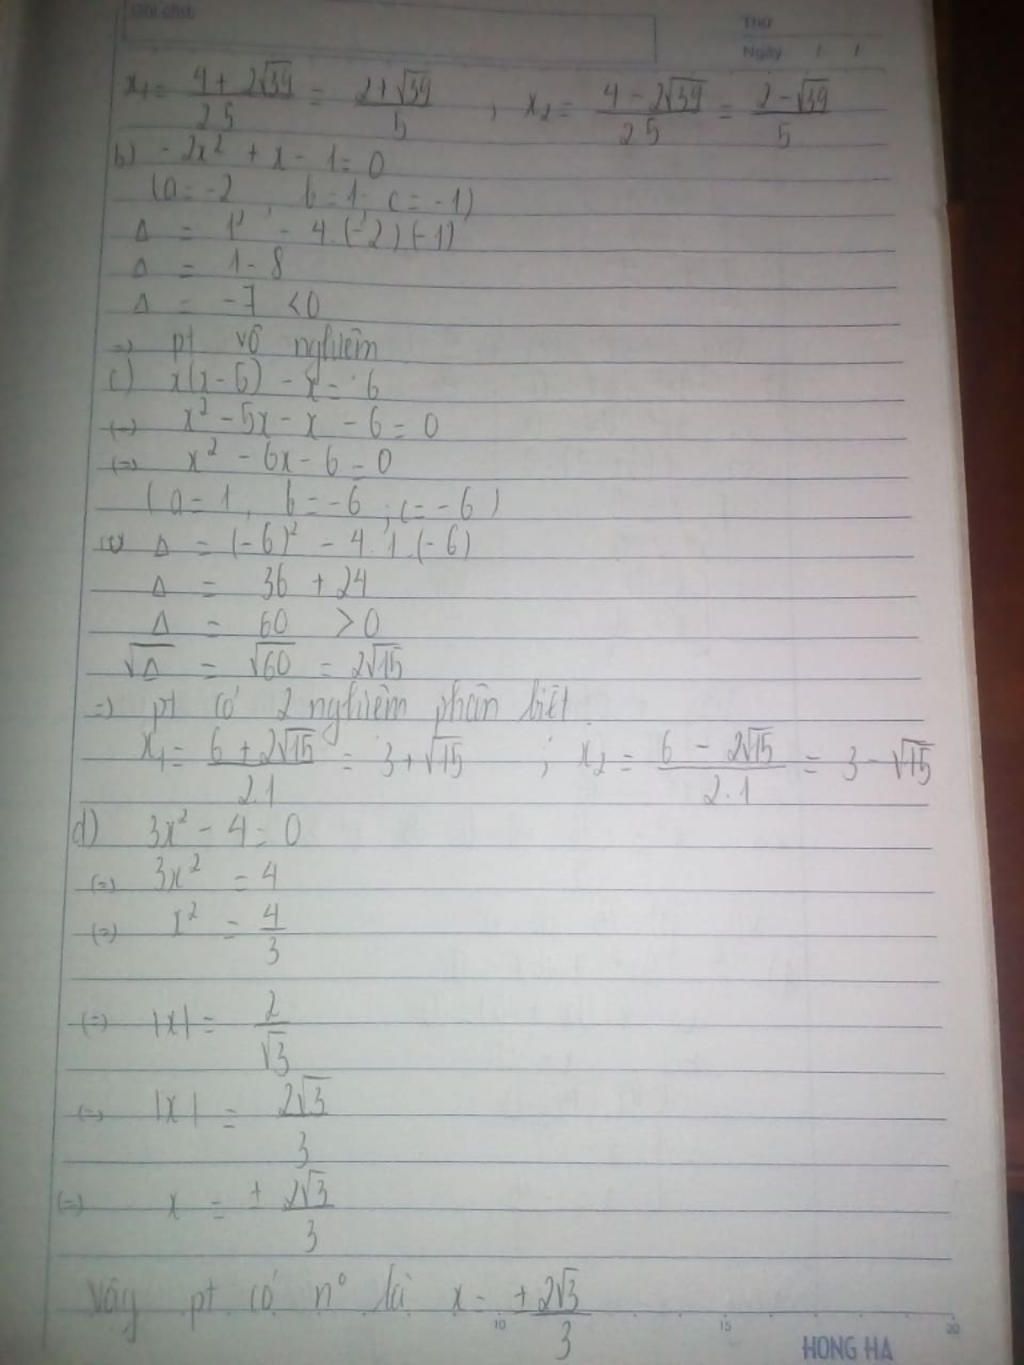 Thứ
Ngày / /
x₁ = \frac{4 + 2\sqrt{39}}{2.5} = \frac{2 + \sqrt{39}}{5} ; x₂ = \frac{4 - 2\sqrt{39}}{2.5} = \frac{2 - \sqrt{39}}{5}
b) -2x² + x - 1 = 0
(a = -2, b = 1; c = -1)
Δ = 1² - 4.(-2)(-1)
Δ = 1 - 8
Δ = -7 < 0
=> pt vô nghiệm
c) x(x - 5) - x = 6
(=) x² - 5x - x - 6 = 0
(=) x² - 6x - 6 = 0
(a = 1, b = -6; c = -6)
Δ = (-6)² - 4.1.(-6)
Δ = 36 + 24
Δ = 60 > 0
\sqrt{Δ} = \sqrt{60} = 2\sqrt{15}
=> pt có 2 nghiệm phân biệt
x₁ = \frac{6 + 2\sqrt{15}}{2.1} = 3 + \sqrt{15} ; x₂ = \frac{6 - 2\sqrt{15}}{2.1} = 3 - \sqrt{15}
d) 3x² - 4 = 0
(=) 3x² = 4
(=) x² = \frac{4}{3}
(=) |x| = \frac{2}{\sqrt{3}}
(=) |x| = \frac{2\sqrt{3}}{3}
(=) x = ± \frac{2\sqrt{3}}{3}
Vậy pt có n° là x = \frac{±2\sqrt{3}}{3}
10 15 20
HONG HA